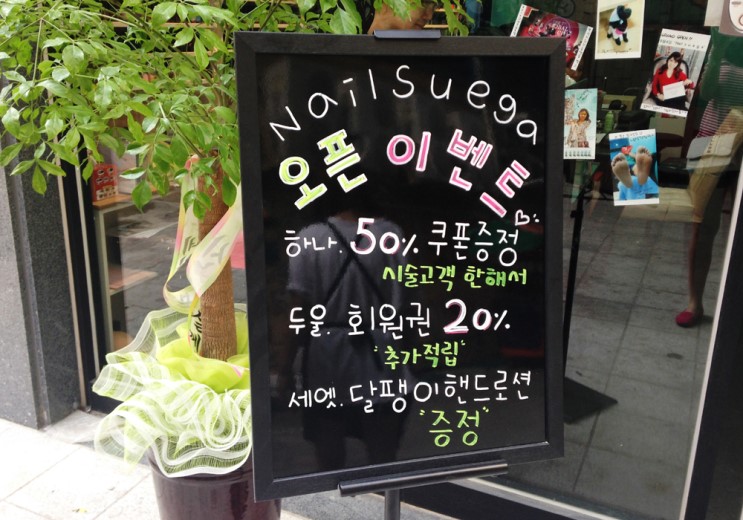 Nailsuega
오픈 이벤트
하나. 50% 쿠폰증정
시술고객 한해서
두울. 회원권 20%
"추가적립"
세엣. 달팽이핸드로션
"증정"